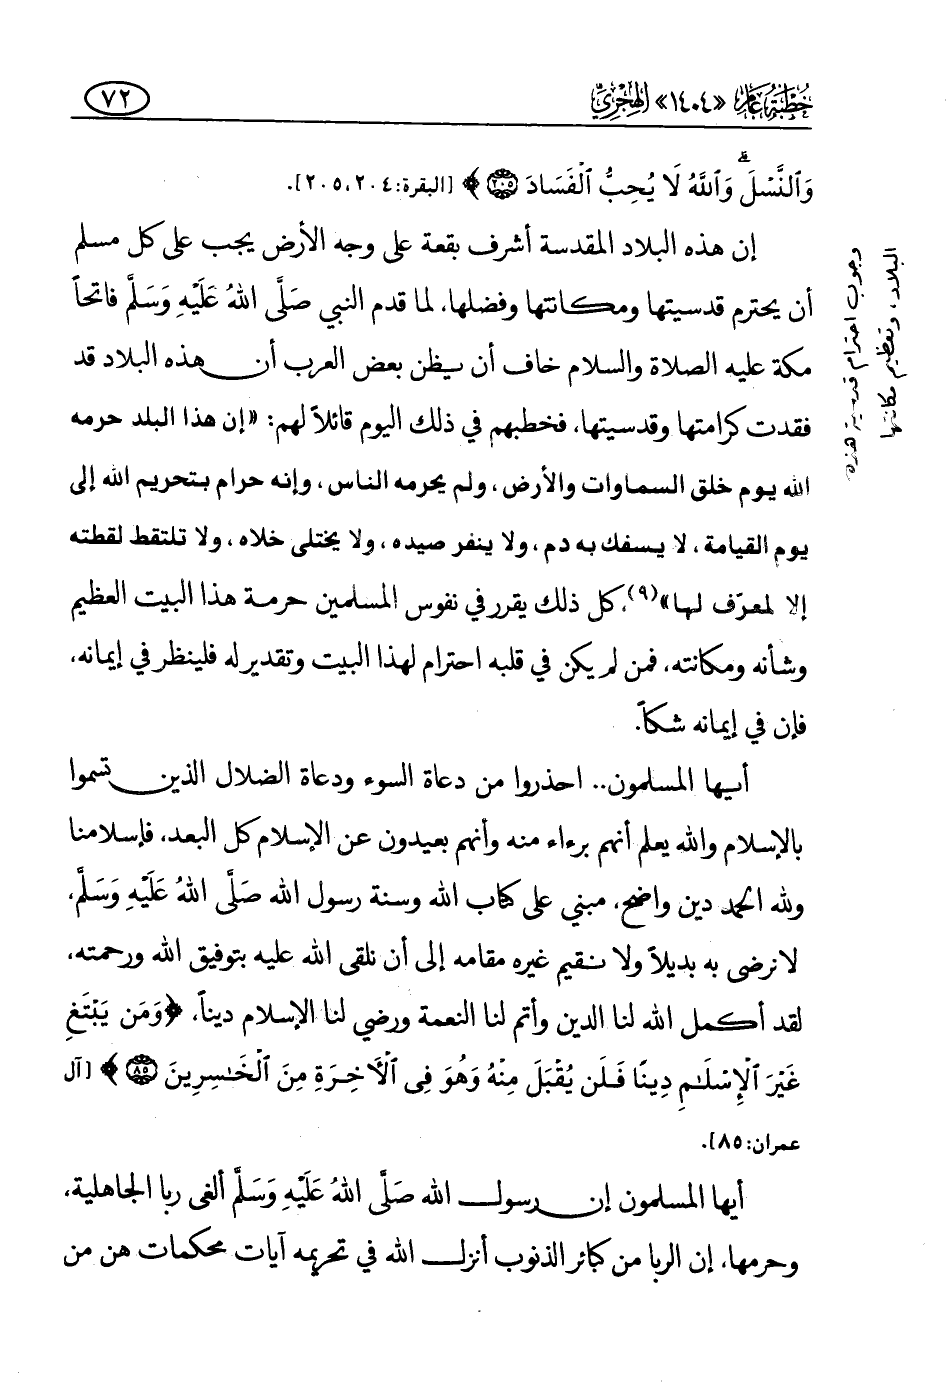 خطبة عام «١٤٠٤» الهجري
٧٢
وَٱلنَّسْلَ ۗ وَٱللَّهُ لَا يُحِبُّ ٱلْفَسَادَ ۝٢٠٥ ﴾ [البقرة: ٢٠٤، ٢٠٥].
إن هذه البلاد المقدسة أشرف بقعة على وجه الأرض يجب على كل مسلم
أن يحترم قدسيتها ومكانتها وفضلها، لما قدم النبي صَلَّى اللهُ عَلَيْهِ وَسَلَّمَ فاتحاً
مكة عليه الصلاة والسلام خاف أن يظن بعض العرب أن هذه البلاد قد
فقدت كرامتها وقدسيتها، فخطبهم في ذلك اليوم قائلاً لهم: «إن هذا البلد حرمه
الله يوم خلق السماوات والأرض، ولم يحرمه الناس، وإنه حرام بتحريم الله إلى
يوم القيامة، لا يسفك به دم، ولا ينفر صيده، ولا يختلى خلاه، ولا تلتقط لقطته
إلا لمعرّف لها»(٩)، كل ذلك يقرر في نفوس المسلمين حرمة هذا البيت العظيم
وشأنه ومكانته، فمن لم يكن في قلبه احترام لهذا البيت وتقدير له فلينظر في إيمانه،
فإن في إيمانه شكاً.
أيها المسلمون.. احذروا من دعاة السوء ودعاة الضلال الذين تسموا
بالإسلام والله يعلم أنهم برءاء منه وأنهم بعيدون عن الإسلام كل البعد، فإسلامنا
ولله الحمد دين واضح، مبني على كتاب الله وسنة رسول الله صَلَّى اللهُ عَلَيْهِ وَسَلَّمَ،
لا نرضى به بديلاً ولا نقيم غيره مقامه إلى أن نلقى الله عليه بتوفيق الله ورحمته،
لقد أكمل الله لنا الدين وأتم لنا النعمة ورضي لنا الإسلام ديناً، ﴿وَمَن يَبْتَغِ
غَيْرَ ٱلْإِسْلَٰمِ دِينًا فَلَن يُقْبَلَ مِنْهُ وَهُوَ فِى ٱلْأَخِرَةِ مِنَ ٱلْخَٰسِرِينَ ۝٨٥ ﴾ [آل
عمران: ٨٥].
أيها المسلمون إن رسول الله صَلَّى اللهُ عَلَيْهِ وَسَلَّمَ ألغى ربا الجاهلية،
وحرمها، إن الربا من كبائر الذنوب أنزل الله في تحريمه آيات محكمات هن من
وجوب احترام قدسية هذه
البلاد، وتعظيم مكانتها